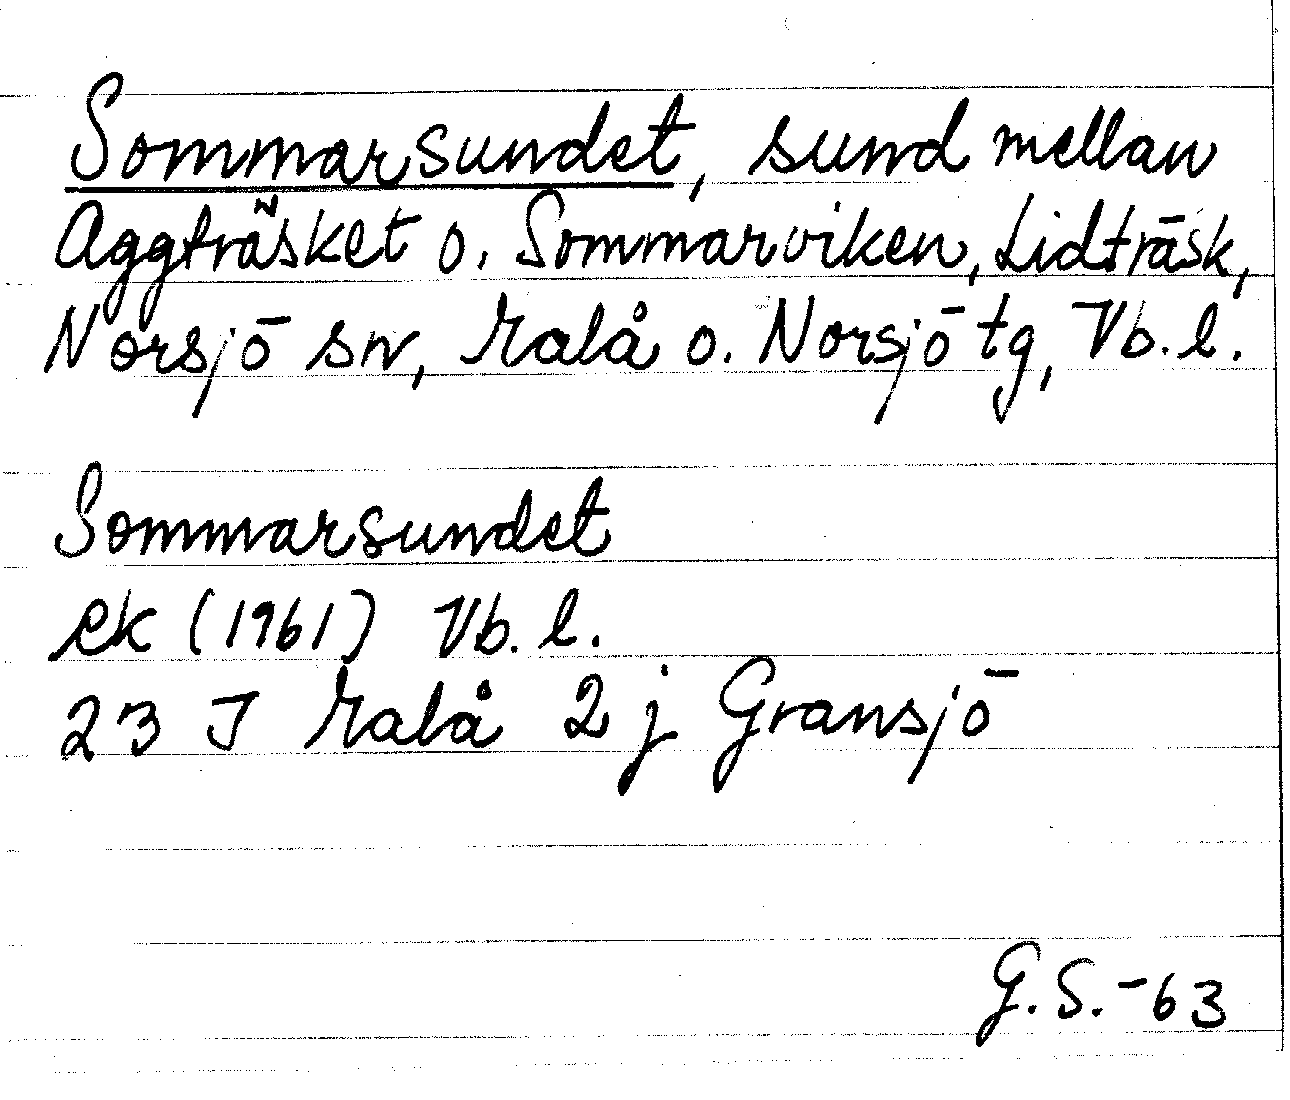 Sommarsundet, sund mellan
Aggträsket o. Sommarviken, Lidträsk,
Norsjö sn, Malå o. Norsjö tg, Vb. l.
Sommarsundet
ek (1961) Vb. l.
23 J Malå 2 j Gransjö
G.S.-63